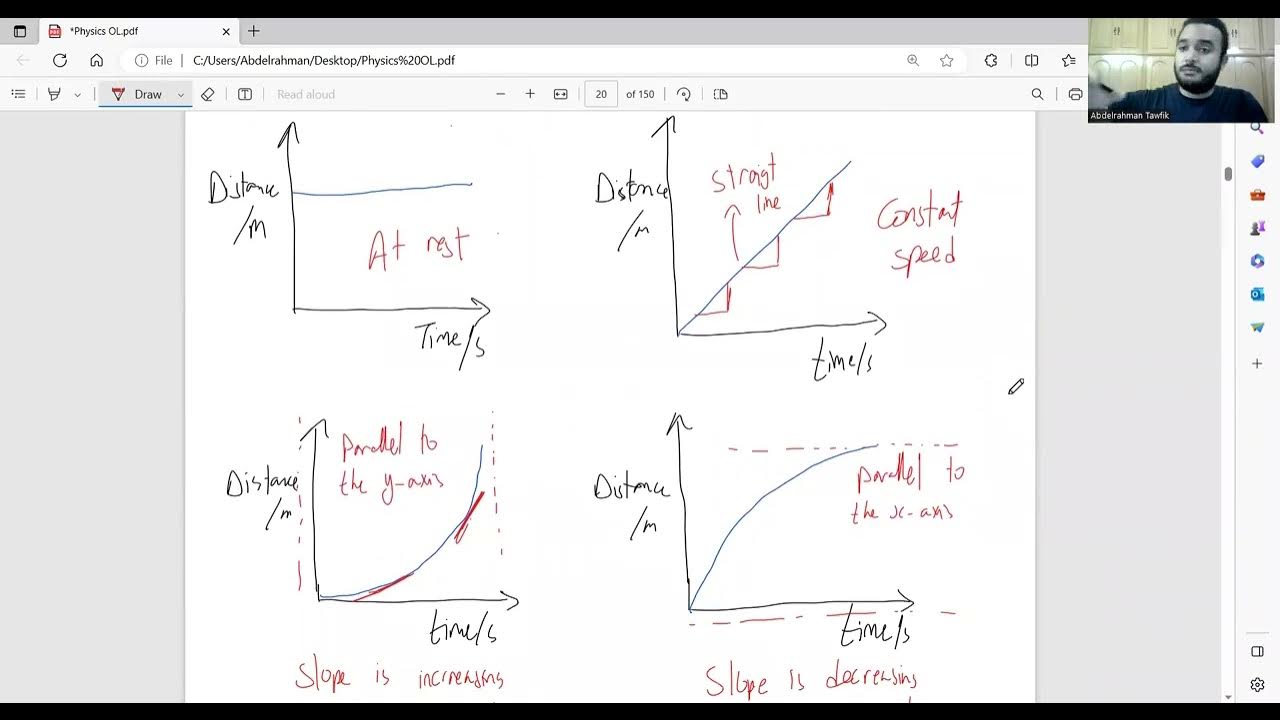 *Physics OL.pdf
File
C:/Users/Abdelrahman/Desktop/Physics%20OL.pdf
Draw
Read aloud
20 of 150
Abdelrahman Tawfik
Distance
/m
At rest
Time/s
Distance
/m
Straigt
line
Constant
speed
time/s
Distance
/m
Parallel to
the y-axis
time/s
Slope is increasing
Distance
/m
parallel to
the x-axis
time/s
Slope is decreasing